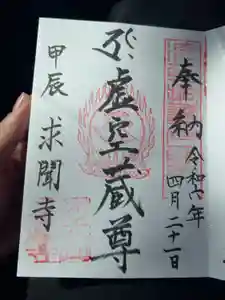 奉納
令和六年
四月二十一日
虚空蔵尊
甲辰
求聞寺